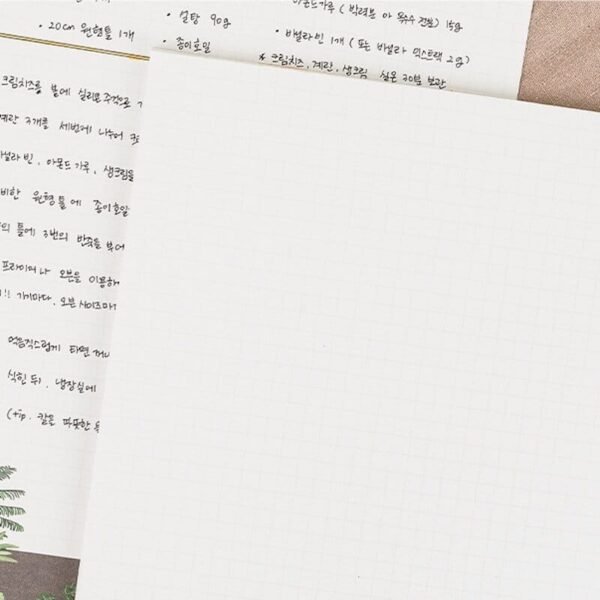 아몬드가루 ( 박력분 or 옥수수 전분 ) 15g
• 설탕 90g
• 바닐라빈 1개 ( 또는 바닐라 익스트랙 2g )
• 20cm 원형틀 1개
• 종이호일
* 크림치즈, 계란, 생크림 실온 30분 보관
크림치즈를 볼에 실리콘 주걱으로
계란 3개를 세번에 나누어
바닐라빈, 아몬드가루, 생크림을
비한 원형틀에 종이호일
의 틀에 3번의 반죽을 부어
프라이어나 오븐을 이용해
!! 기기마다, 오븐 사이즈마
먹음직스럽게 타면 꺼내
식힌 뒤, 냉장실에
(tip. 칼을 따뜻한